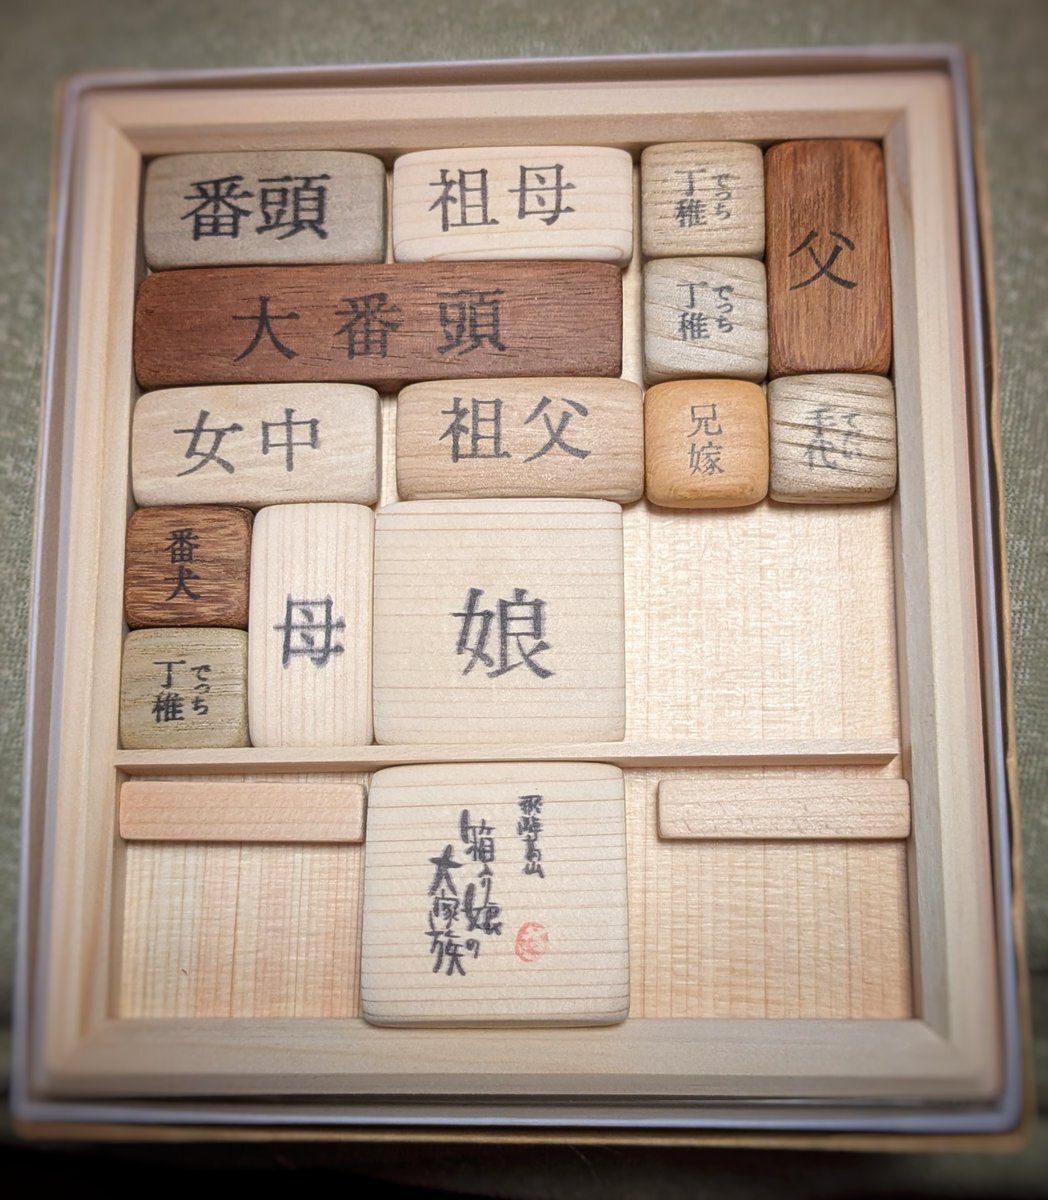 番頭
祖母
丁稚
でっち
父
大番頭
丁稚
でっち
女中
祖父
兄嫁
手代
てだい
番犬
母
娘
丁稚
でっち
飛騨高山
箱入り娘の
大家族